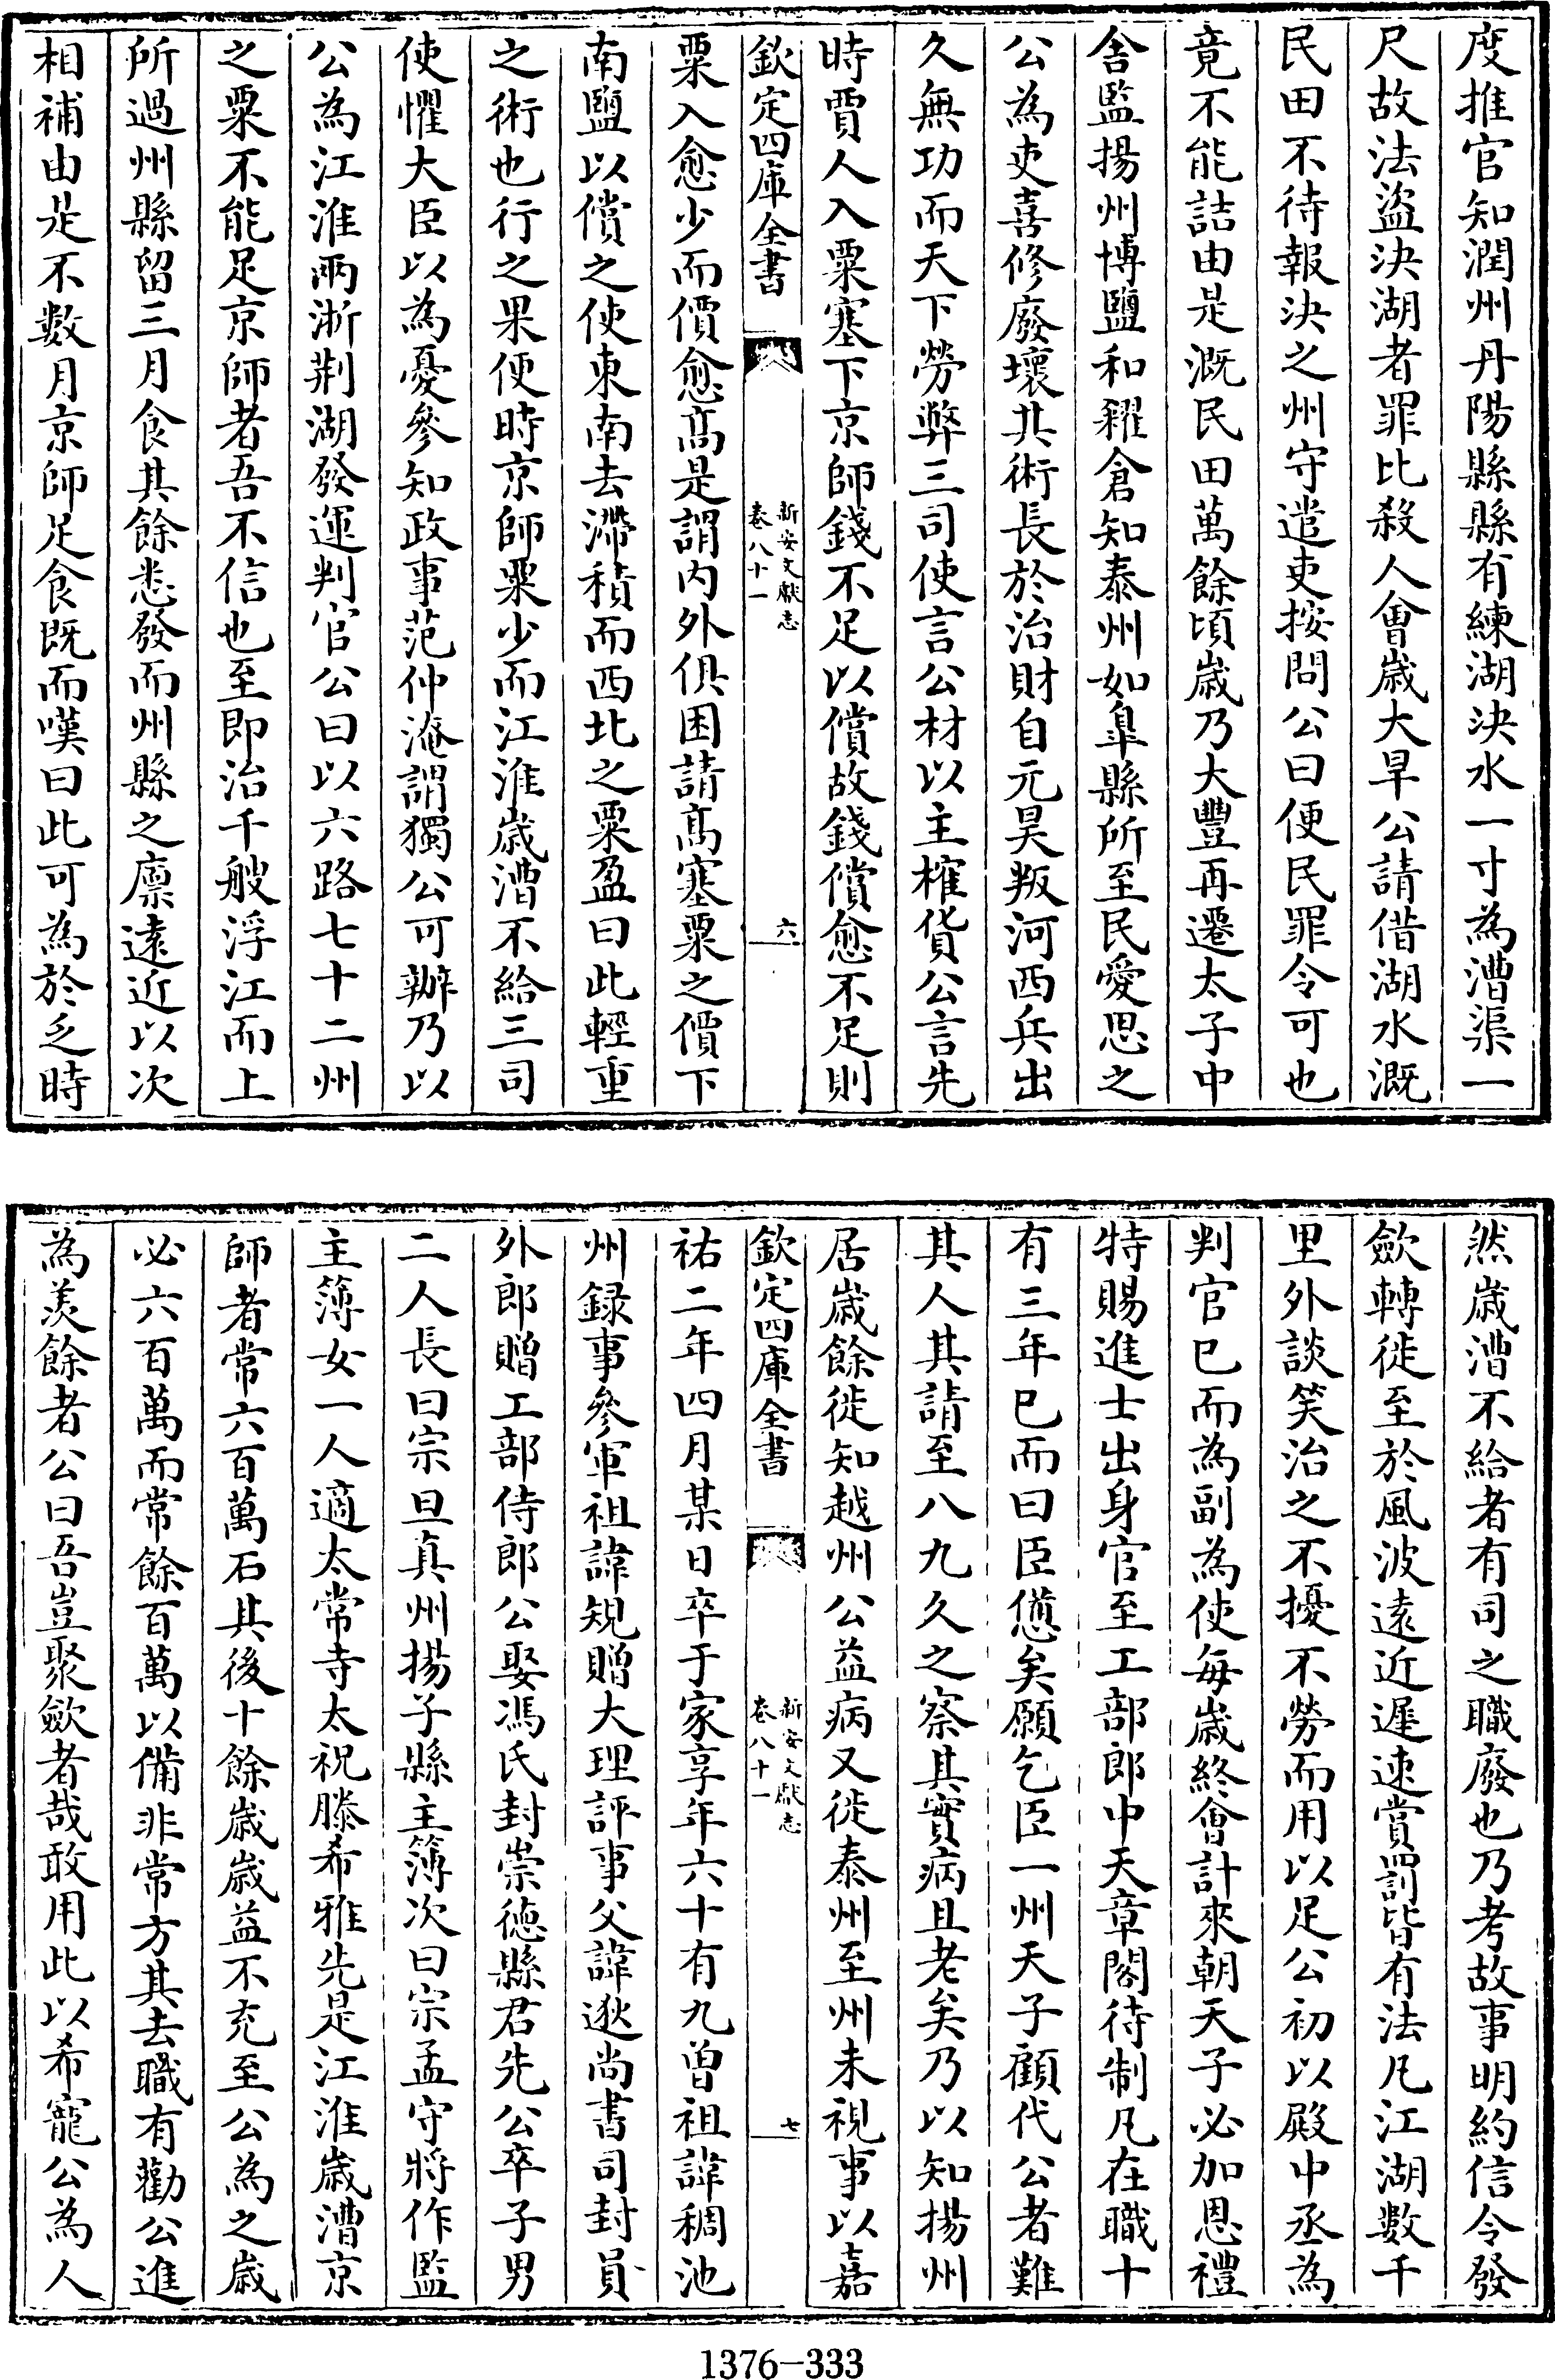 度推官知潤州丹陽縣縣有練湖決水一寸為漕渠一
尺故法盜決湖者罪比殺人會歲大旱公請借湖水溉
民田不待報決之州守遣吏按問公曰便民罪令可也
竟不能詰由是溉民田萬餘頃歲乃大豐再遷太子中
舍監揚州博鹽和糴倉知泰州如臯縣所至民愛思之
公為吏喜修廢壞其術長於治財自元昊叛河西兵出
久無功而天下勞弊三司使言公材以主榷貨公言先
時賈人入粟塞下京師錢不足以償故錢償愈不足則
欽定四庫全書
新安文獻志
卷八十一
六
粟入愈少而價愈髙是謂内外俱困請髙塞粟之價下
南鹽以償之使東南去滯積而西北之粟盈曰此輕重
之術也行之果便時京師粟少而江淮歲漕不給三司
使懼大臣以為憂參知政事范仲淹謂獨公可辦乃以
公為江淮兩浙荆湖發運判官公曰以六路七十二州
之粟不能足京師者吾不信也至即治千艘浮江而上
所過州縣留三月食其餘悉發而州縣之廪逺近以次
相補由是不數月京師足食既而嘆曰此可為於乏時
然歲漕不給者有司之職廢也乃考故事明約信令發
斂轉徙至於風波逺近遲速賞罰皆有法凡江湖數千
里外談笑治之不擾不勞而用以足公初以殿中丞為
判官已而為副為使每歲終會計來朝天子必加恩禮
特賜進士出身官至工部郎中天章閣待制凡在職十
有三年已而曰臣憊矣願乞臣一州天子顧代公者難
其人其請至八九久之察其實病且老矣乃以知揚州
居歲餘徙知越州公益病又徙泰州至州未視事以嘉
欽定四庫全書
新安文獻志
卷八十一
七
祐二年四月某日卒于家享年六十有九曾祖諱稠池
州録事參軍祖諱規贈大理評事父諱逖尚書司封員
外郎贈工部侍郎公娶馮氏封崇徳縣君先公卒子男
二人長曰宗旦真州揚子縣主簿次曰宗孟守將作監
主簿女一人適太常寺太祝滕希雅先是江淮歲漕京
師者常六百萬石其後十餘歲歲益不充至公為之歲
必六百萬而常餘百萬以備非常方其去職有勸公進
為羨餘者公曰吾豈聚斂者哉敢用此以希寵公為人
1376-333